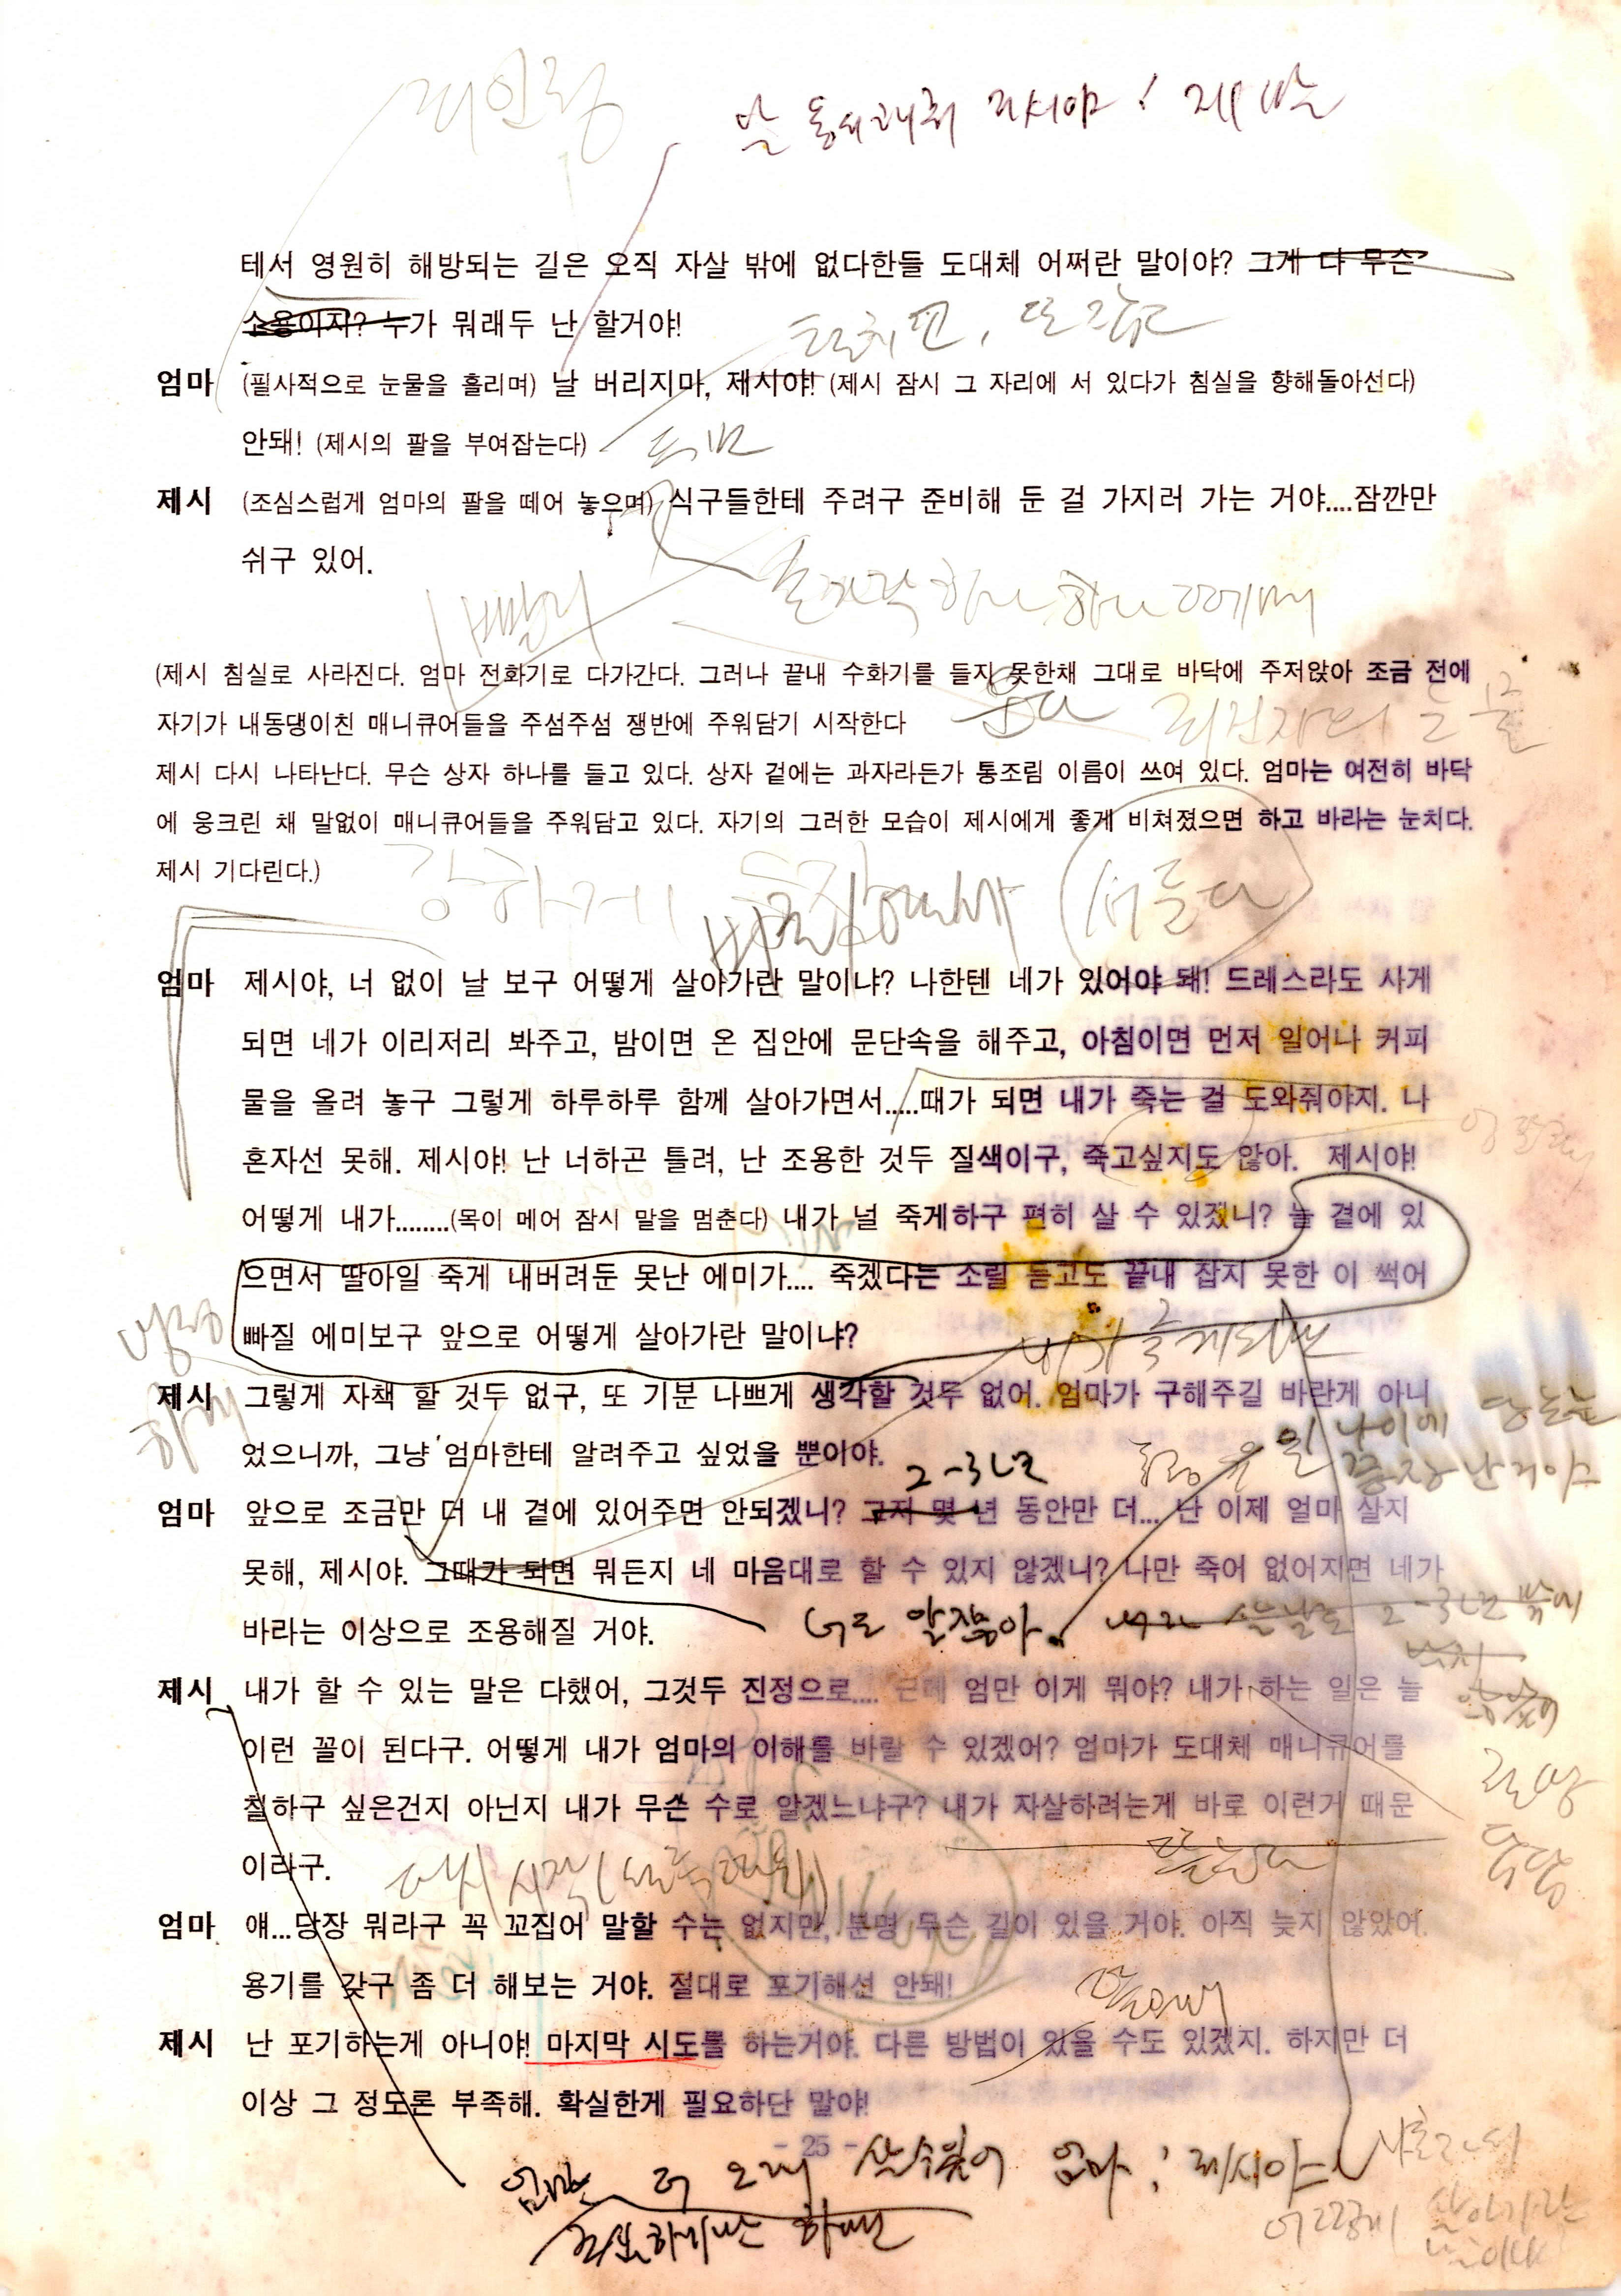 테서 영원히 해방되는 길은 오직 자살 밖에 없다한들 도대체 어쩌란 말이야? 그게 다 무슨
소용이지? 누가 뭐래두 난 할거야!
엄마 (필사적으로 눈물을 흘리며) 날 버리지마, 제시야! (제시 잠시 그 자리에 서 있다가 침실을 향해돌아선다)
안돼! (제시의 팔을 부여잡는다)
제시 (조심스럽게 엄마의 팔을 떼어 놓으며) 식구들한테 주려구 준비해 둔 걸 가지러 가는 거야....잠깐만
쉬구 있어.
빨리
손가락 하나 하나
(제시 침실로 사라진다. 엄마 전화기로 다가간다. 그러나 끝내 수화기를 들지 못한채 그대로 바닥에 주저앉아 조금 전에
자기가 내동댕이친 매니큐어들을 주섬주섬 쟁반에 주워담기 시작한다
운다
제시 다시 나타난다. 무슨 상자 하나를 들고 있다. 상자 겉에는 과자라든가 통조림 이름이 쓰여 있다. 엄마는 여전히 바닥
에 웅크린 채 말없이 매니큐어들을 주워담고 있다. 자기의 그러한 모습이 제시에게 좋게 비쳐졌으면 하고 바라는 눈치다.
제시 기다린다.)
강하게
엄마 제시야, 너 없이 날 보구 어떻게 살아가란 말이냐? 나한텐 네가 있어야 돼! 드레스라도 사게
되면 네가 이리저리 봐주고, 밤이면 온 집안에 문단속을 해주고, 아침이면 먼저 일어나 커피
물을 올려 놓구 그렇게 하루하루 함께 살아가면서.....때가 되면 내가 죽는 걸 도와줘야지. 나
혼자선 못해. 제시야! 난 너하곤 틀려, 난 조용한 것두 질색이구, 죽고싶지도 않아. 제시야!
어떻게 내가........(목이 메어 잠시 말을 멈춘다) 내가 널 죽게하구 편히 살 수 있겠니? 늘 곁에 있
으면서 딸아일 죽게 내버려둔 못난 에미가.... 죽겠다는 소릴 듣고도 끝내 잡지 못한 이 썩어
빠질 에미보구 앞으로 어떻게 살아가란 말이냐?
제시 그렇게 자책 할 것두 없구, 또 기분 나쁘게 생각할 것두 없어. 엄마가 구해주길 바란게 아니
었으니까, 그냥 엄마한테 알려주고 싶었을 뿐이야.
2-3년
엄마 앞으로 조금만 더 내 곁에 있어주면 안되겠니? 그저 몇 년 동안만 더... 난 이제 얼마 살지
못해, 제시야. 그때가 되면 뭐든지 네 마음대로 할 수 있지 않겠니? 나만 죽어 없어지면 네가
바라는 이상으로 조용해질 거야.
너도 알잖아. 2-3년 밖에
제시 내가 할 수 있는 말은 다했어, 그것두 진정으로.... 근데 엄만 이게 뭐야? 내가 하는 일은 늘
이런 꼴이 된다구. 어떻게 내가 엄마의 이해를 바랄 수 있겠어? 엄마가 도대체 매니큐어를
칠하구 싶은건지 아닌지 내가 무슨 수로 알겠느냐구? 내가 자살하려는게 바로 이런거 때문
이라구.
엄마 얘...당장 뭐라구 꼭 꼬집어 말할 수는 없지만, 분명 무슨 길이 있을 거야. 아직 늦지 않았어.
용기를 갖구 좀 더 해보는 거야. 절대로 포기해선 안돼!
제시 난 포기하는게 아니야! 마지막 시도를 하는거야. 다른 방법이 있을 수도 있겠지. 하지만 더
이상 그 정도론 부족해. 확실한게 필요하단 말야!
- 25 -
엄만 더 오래 살 수 있어 엄마! 제시야
어떻게 살아가라는
말이냐